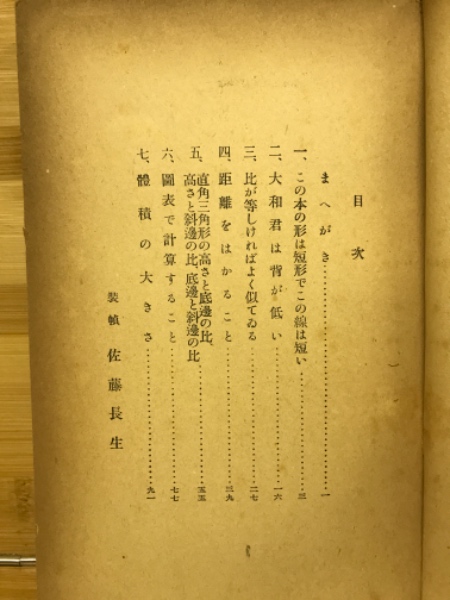 目次
まへがき……………………一
一、この本の形は矩形でこの線は短い…………三
二、大和君は背が低い……………………一六
三、比が等しければよく似てゐる…………二七
四、距離をはかること……………………三九
五、直角三角形の高さと底邊の比、
高さと斜邊の比、底邊と斜邊の比…………五五
六、圖表で計算すること……………………七七
七、體積の大きさ……………………九一
裝幀 佐藤長生